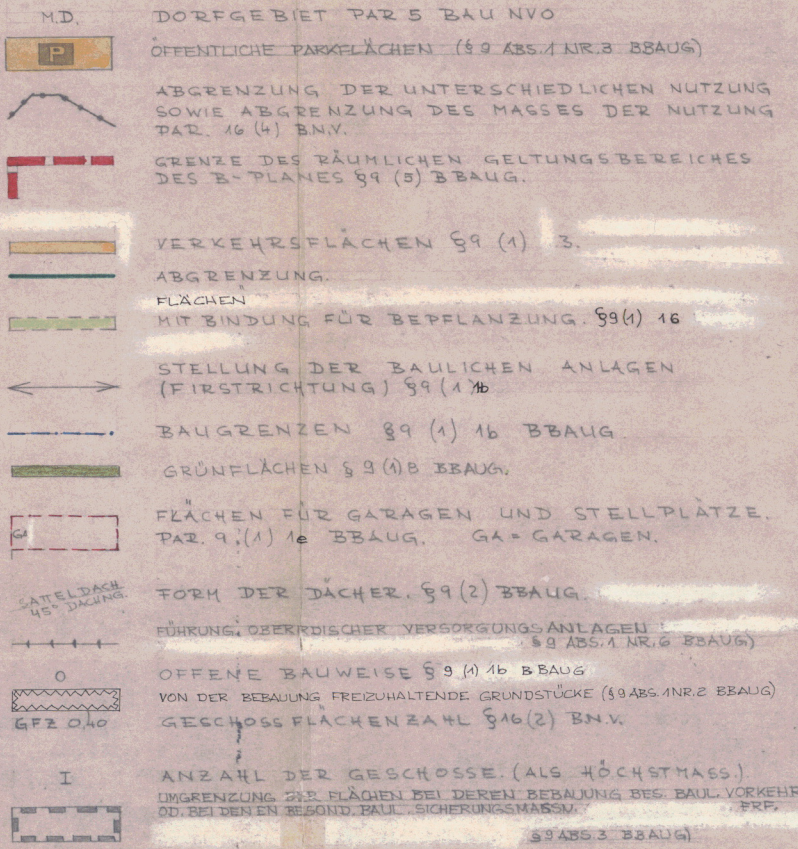 M.D. DORFGEBIET PAR 5 BAU NVO
P ÖFFENTLICHE PARKFLÄCHEN (§ 9 ABS.1 NR.3 BBAUG)
ABGRENZUNG DER UNTERSCHIEDLICHEN NUTZUNG
SOWIE ABGRENZUNG DES MASSES DER NUTZUNG
PAR. 16 (4) B.N.V.
GRENZE DES RÄUMLICHEN GELTUNGSBEREICHES
DES B-PLANES §9 (5) BBAUG.
VERKEHRSFLÄCHEN §9 (1) 3.
ABGRENZUNG.
FLÄCHEN
MIT BINDUNG FÜR BEPFLANZUNG. §9(1) 16
STELLUNG DER BAULICHEN ANLAGEN
(FIRSTRICHTUNG) §9 (1) 1b
BAUGRENZEN §9 (1) 1b BBAUG
GRÜNFLÄCHEN § 9 (1) 8 BBAUG.
FLÄCHEN FÜR GARAGEN UND STELLPLÄTZE.
GA PAR. 9. (1) 1e BBAUG. GA = GARAGEN.
SATTELDACH
45° DACHNG. FORM DER DÄCHER. §9 (2) BBAUG.
FÜHRUNG OBERIRDISCHER VERSORGUNGSANLAGEN
§ 9 ABS.1 NR.6 BBAUG)
O OFFENE BAUWEISE § 9 (1) 1b BBAUG
VON DER BEBAUUNG FREIZUHALTENDE GRUNDSTÜCKE (§9 ABS.1 NR.2 BBAUG)
GFZ 0,40 GESCHOSSFLÄCHENZAHL §16(2) B.N.V.
I ANZAHL DER GESCHOSSE. (ALS HÖCHSTMASS.)
UMGRENZUNG DER FLÄCHEN BEI DEREN BEBAUUNG BES. BAUL. VORKEHR
OD. BEI DENEN BESOND. BAUL. SICHERUNGSMASSN. ERF.
§9 ABS 3 BBAUG)